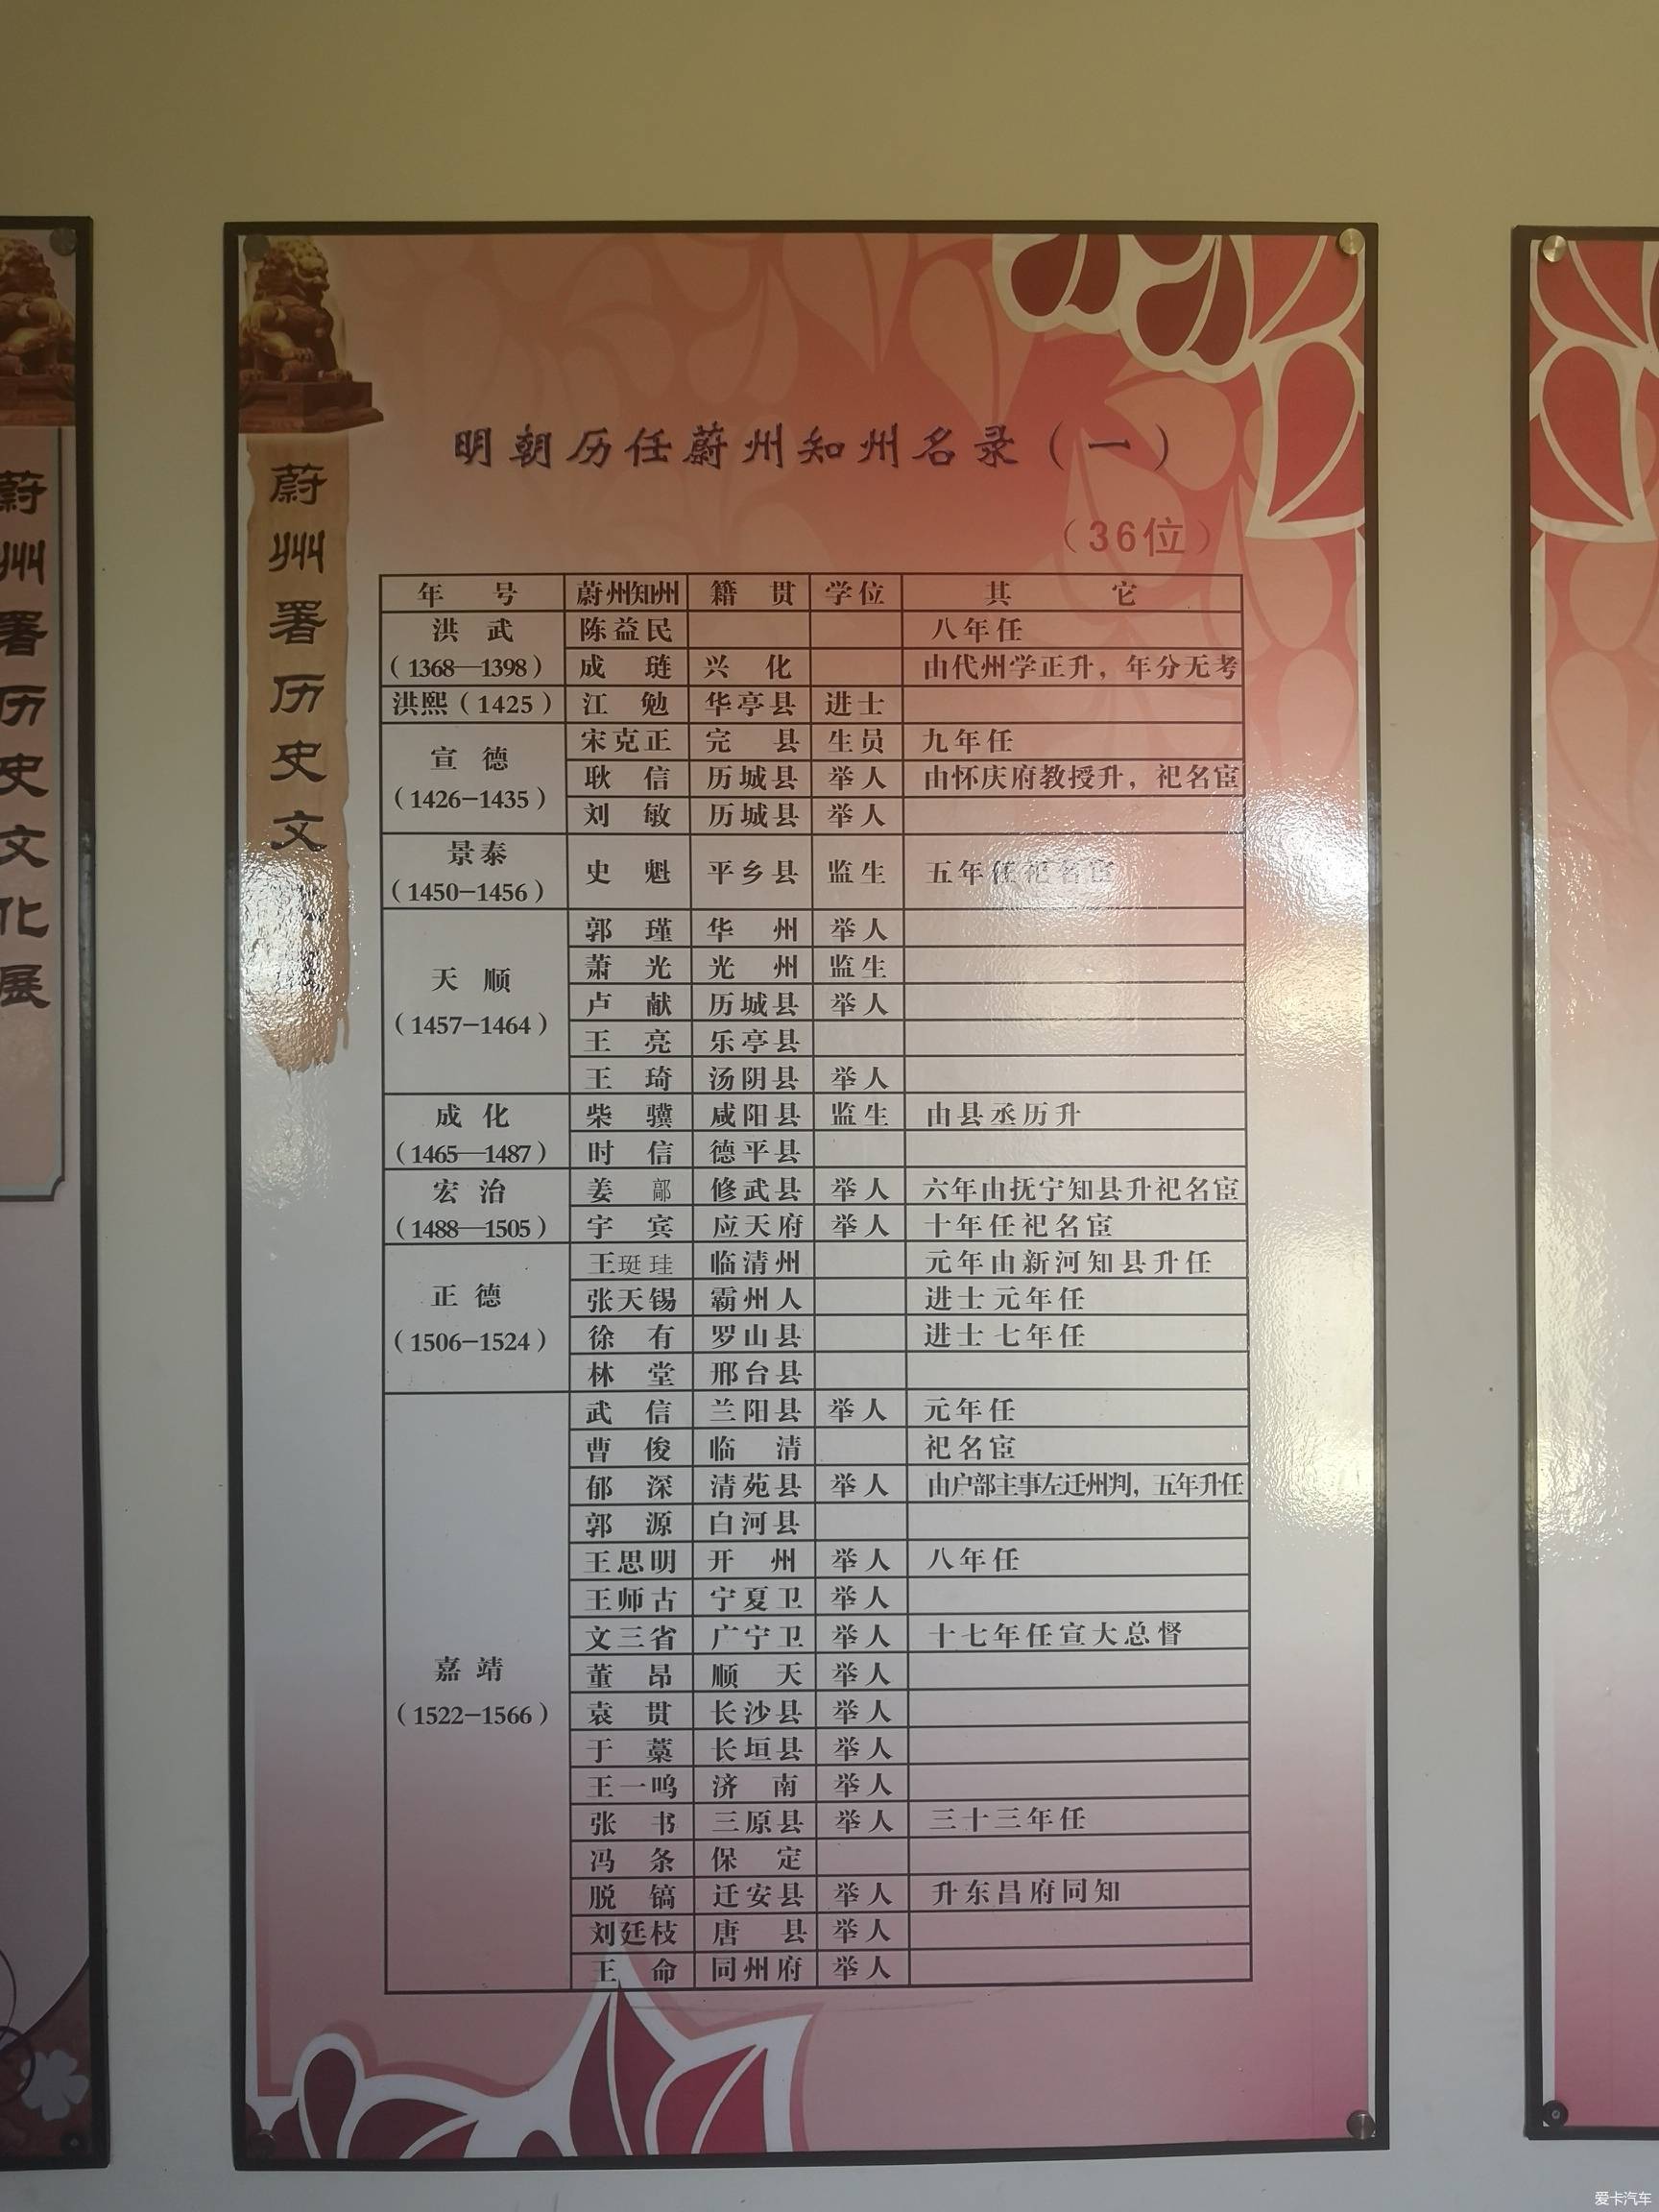 蔚州署历史文化展
蔚州署历史文
明朝历任蔚州知州名录（一）
（36位）
年 号 蔚州知州 籍 贯 学位 其 它
洪 武 陈益民 八年任
（1368—1398） 成 琏 兴 化 由代州学正升，年分无考
洪熙（1425） 江 勉 华亭县 进士
宣 德 宋克正 完 县 生员 九年任
（1426—1435） 耿 信 历城县 举人 由怀庆府教授升，祀名宦
刘 敏 历城县 举人
景泰
（1450—1456） 史 魁 平乡县 监生 五年任祀名宦
郭 瑾 华 州 举人
萧 光 光 州 监生
天 顺 卢 献 历城县 举人
（1457—1464） 王 亮 乐亭县
王 琦 汤阴县 举人
成 化 柴 骥 咸阳县 监生 由县丞历升
（1465—1487） 时 信 德平县
宏 治 姜 鄗 修武县 举人 六年由抚宁知县升祀名宦
（1488—1505） 宇 宾 应天府 举人 十年任祀名宦
王珽珪 临清州 元年由新河知县升任
正 德 张天锡 霸州人 进士 元年任
（1506—1524） 徐 有 罗山县 进士 七年任
林 堂 邢台县
武 信 兰阳县 举人 元年任
曹 俊 临 清 祀名宦
郁 深 清苑县 举人 由户部主事左迁州判，五年升任
郭 源 白河县
王思明 开 州 举人 八年任
王师古 宁夏卫 举人
文三省 广宁卫 举人 十七年任宣大总督
嘉 靖 董 昂 顺 天 举人
（1522—1566） 袁 贯 长沙县 举人
于 藁 长垣县 举人
王一鸣 济 南 举人
张 书 三原县 举人 三十三年任
冯 条 保 定
脱 镐 迁安县 举人 升东昌府同知
刘廷枝 唐 县 举人
王 命 同州府 举人
爱卡汽车